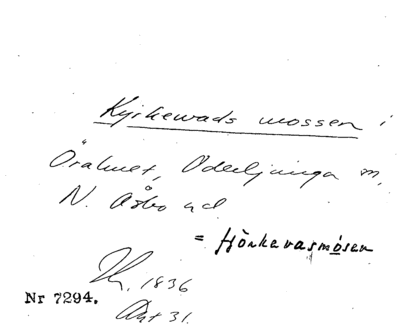 Kyrkewads mossen i
Örahult, Oderljunga m,
N. Åsbo hd
= Hörkevasmosen
1836
Nr 7294.
Akt 31.